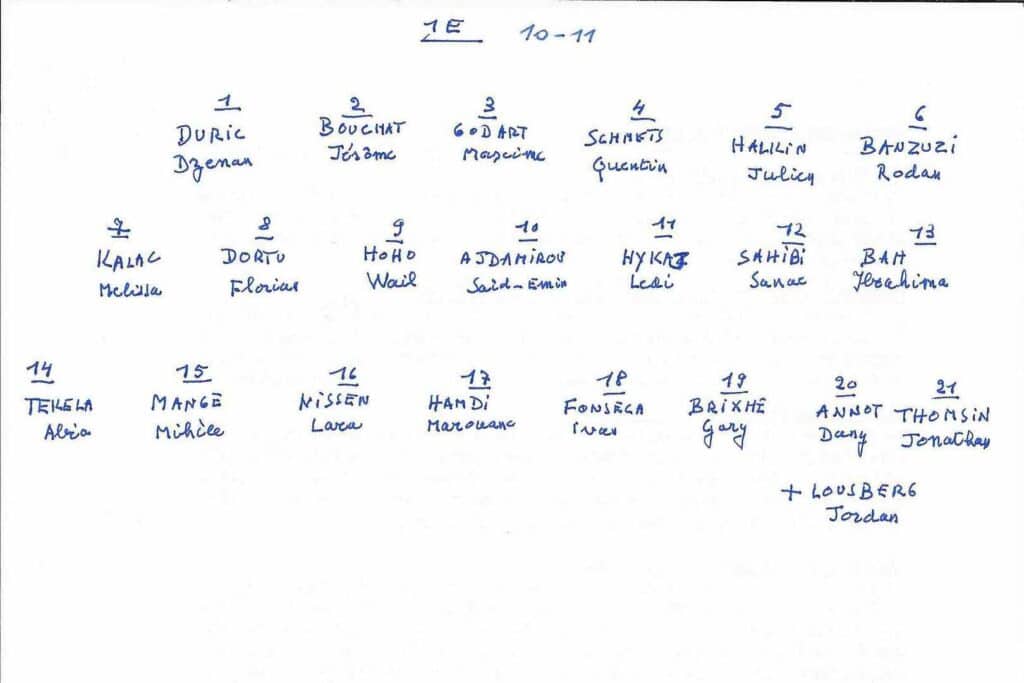 1E 10-11
1 2 3 4 5 6
DURIC BOUCHAT GODART SCHMETS HALILIN BANZUZI
Dzenan Jérôme Maxime Quentin Julien Rodan
7 8 9 10 11 12 13
KALAC DORTU HOHO AJDAMIROV HYKAJ SAHIBI BAH
Melissa Florian Wail Said-Emin Ledi Sanae Ibrahima
14 15 16 17 18 19 20 21
TEKELA MANGE NISSEN HAMDI FONSECA BRIXHE ANNOT THOMSIN
Lara Marouane Ivan Gary Dany Jonathan
+ LOUSBERG
Jordan